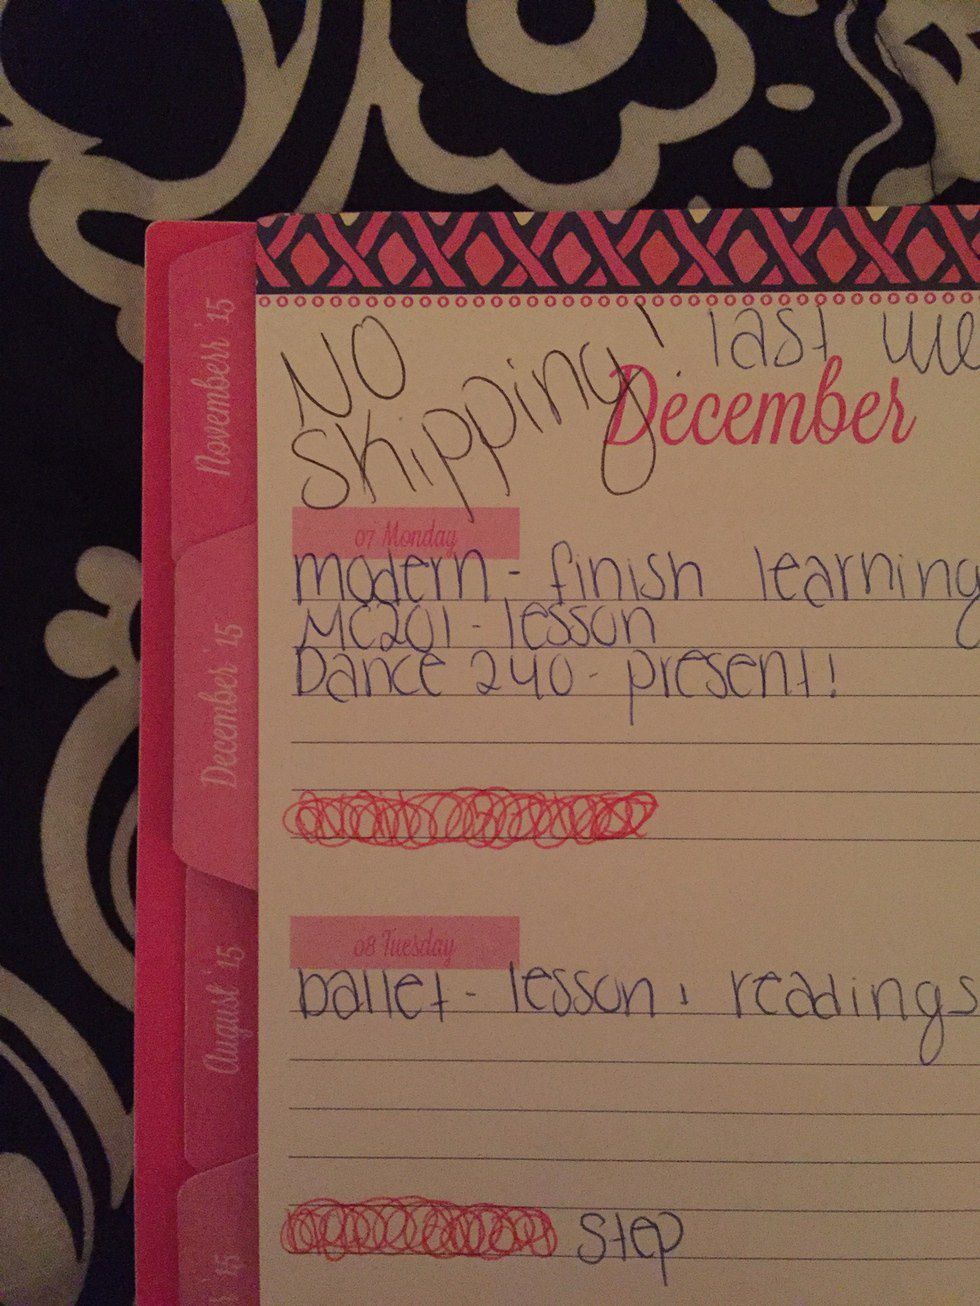 NO
Skipping! last
December
07 Monday
modern - finish learning
MC201 - lesson
Dance 240 - present!
08 Tuesday
ballet - lesson, readings
step
Novemberr '15
December '15
August '15
'15